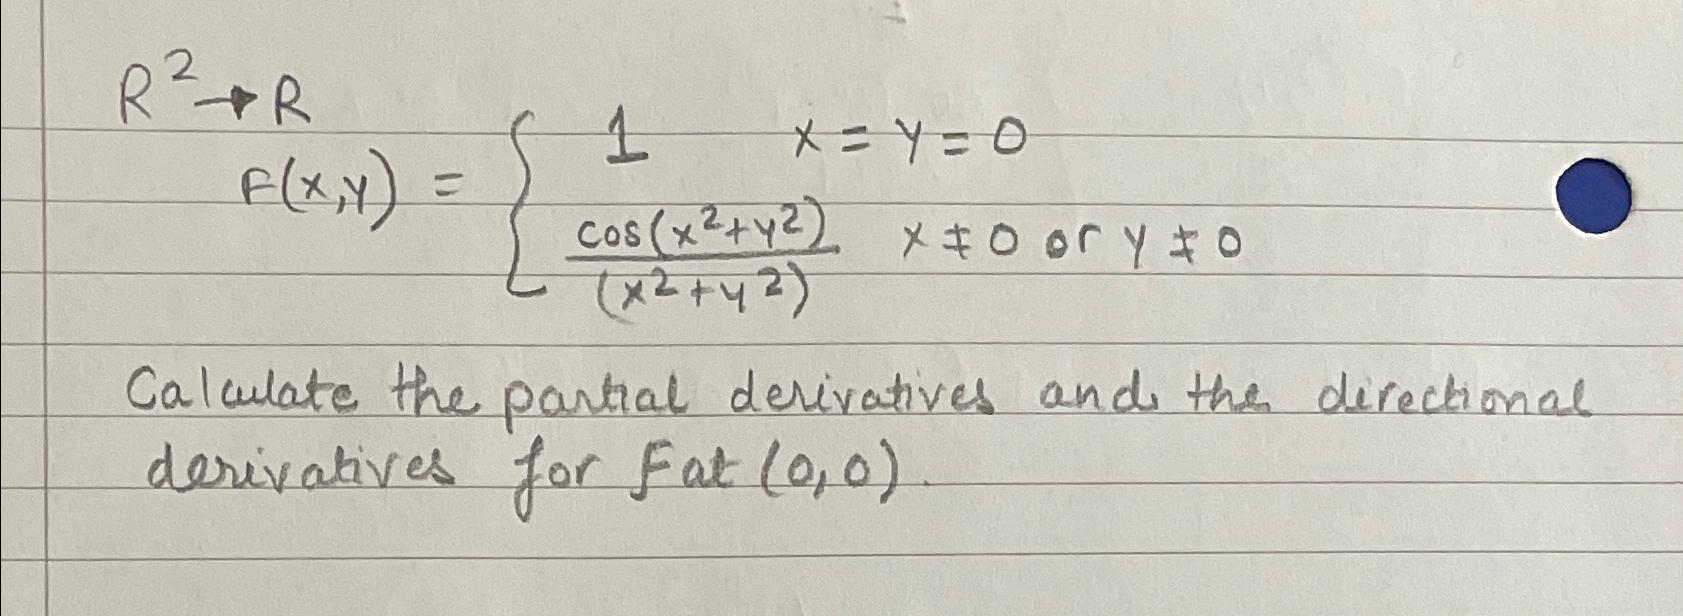 R² → R
F(x,y) = { 1 x = y = 0
cos(x²+y²) / (x²+y²) x ≠ 0 or y ≠ 0
Calculate the partial derivatives and the directional
derivatives for F at (0,0).